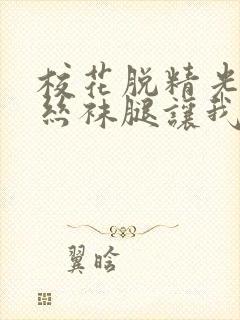 校花脱精光
丝袜腿讓我
翼晗